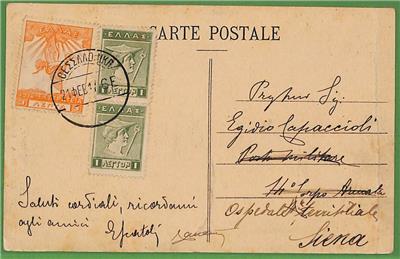 CARTE POSTALE
ΕΛΛΑΣ
ΛΕΠΤΑ
ΕΛΛΑΣ
1 ΛΕΠΤΟΝ 1
ΕΛΛΑΣ
1 ΛΕΠΤΟΝ 1
ΘΕΣΣΑΛΟΝΙΚΗ
21 ΦΕΒ
Egidio Capaccioli
Posta militare
Ospedale territoriale
Siena
Saluti cordiali, ricordami
agli amici